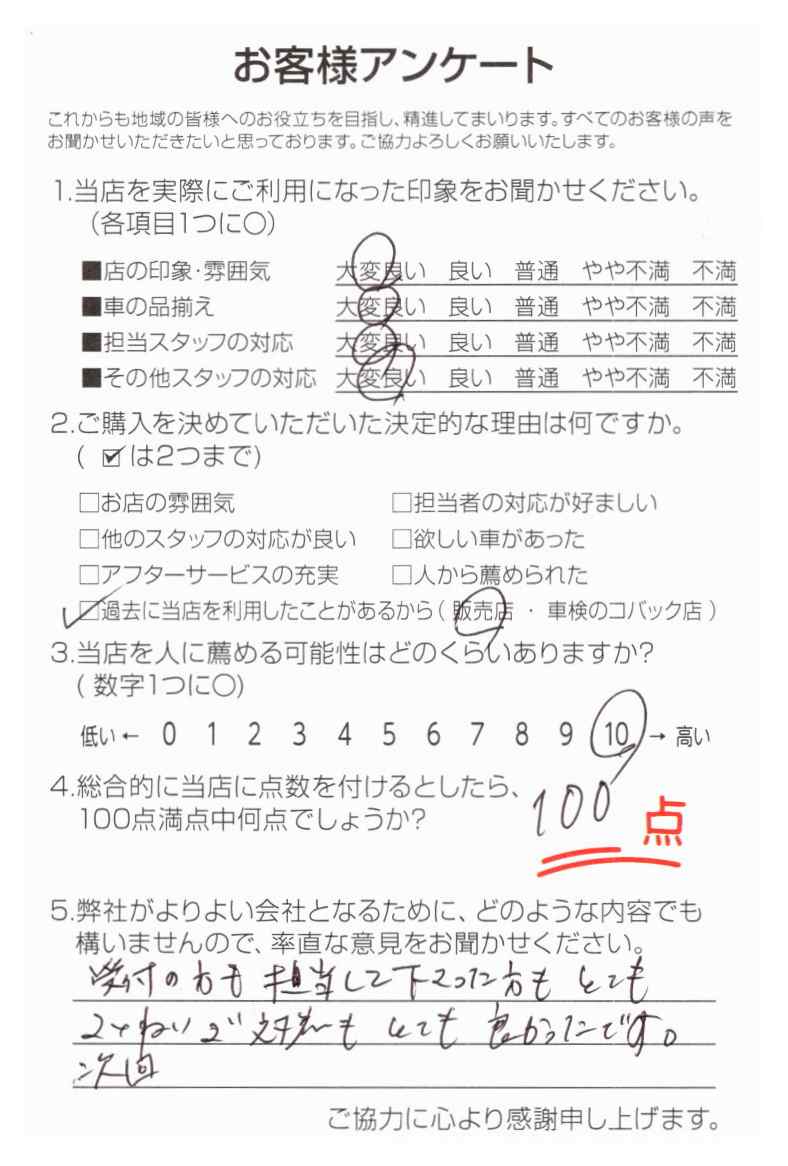 お客様アンケート
これからも地域の皆様へのお役立ちを目指し、精進してまいります。すべてのお客様の声を
お聞かせいただきたいと思っております。ご協力よろしくお願いいたします。
1.当店を実際にご利用になった印象をお聞かせください。
（各項目1つに○）
■店の印象･雰囲気 大変良い 良い 普通 やや不満 不満
■車の品揃え 大変良い 良い 普通 やや不満 不満
■担当スタッフの対応 大変良い 良い 普通 やや不満 不満
■その他スタッフの対応 大変良い 良い 普通 やや不満 不満
2.ご購入を決めていただいた決定的な理由は何ですか。
( ☑は2つまで)
□お店の雰囲気 □担当者の対応が好ましい
□他のスタッフの対応が良い □欲しい車があった
□アフターサービスの充実 □人から薦められた
☑過去に当店を利用したことがあるから ( 販売店 ・ 車検のコバック店 )
3.当店を人に薦める可能性はどのくらいありますか?
( 数字1つに○)
低い ← 0 1 2 3 4 5 6 7 8 9 10 → 高い
4.総合的に当店に点数を付けるとしたら、
100点満点中何点でしょうか?
100 点
5.弊社がよりよい会社となるために、どのような内容でも
構いませんので、率直な意見をお聞かせください。
受付の方も 担当して下さった方も とても
ていねいで 対応も とても 良かったです。
次回
ご協力に心より感謝申し上げます。